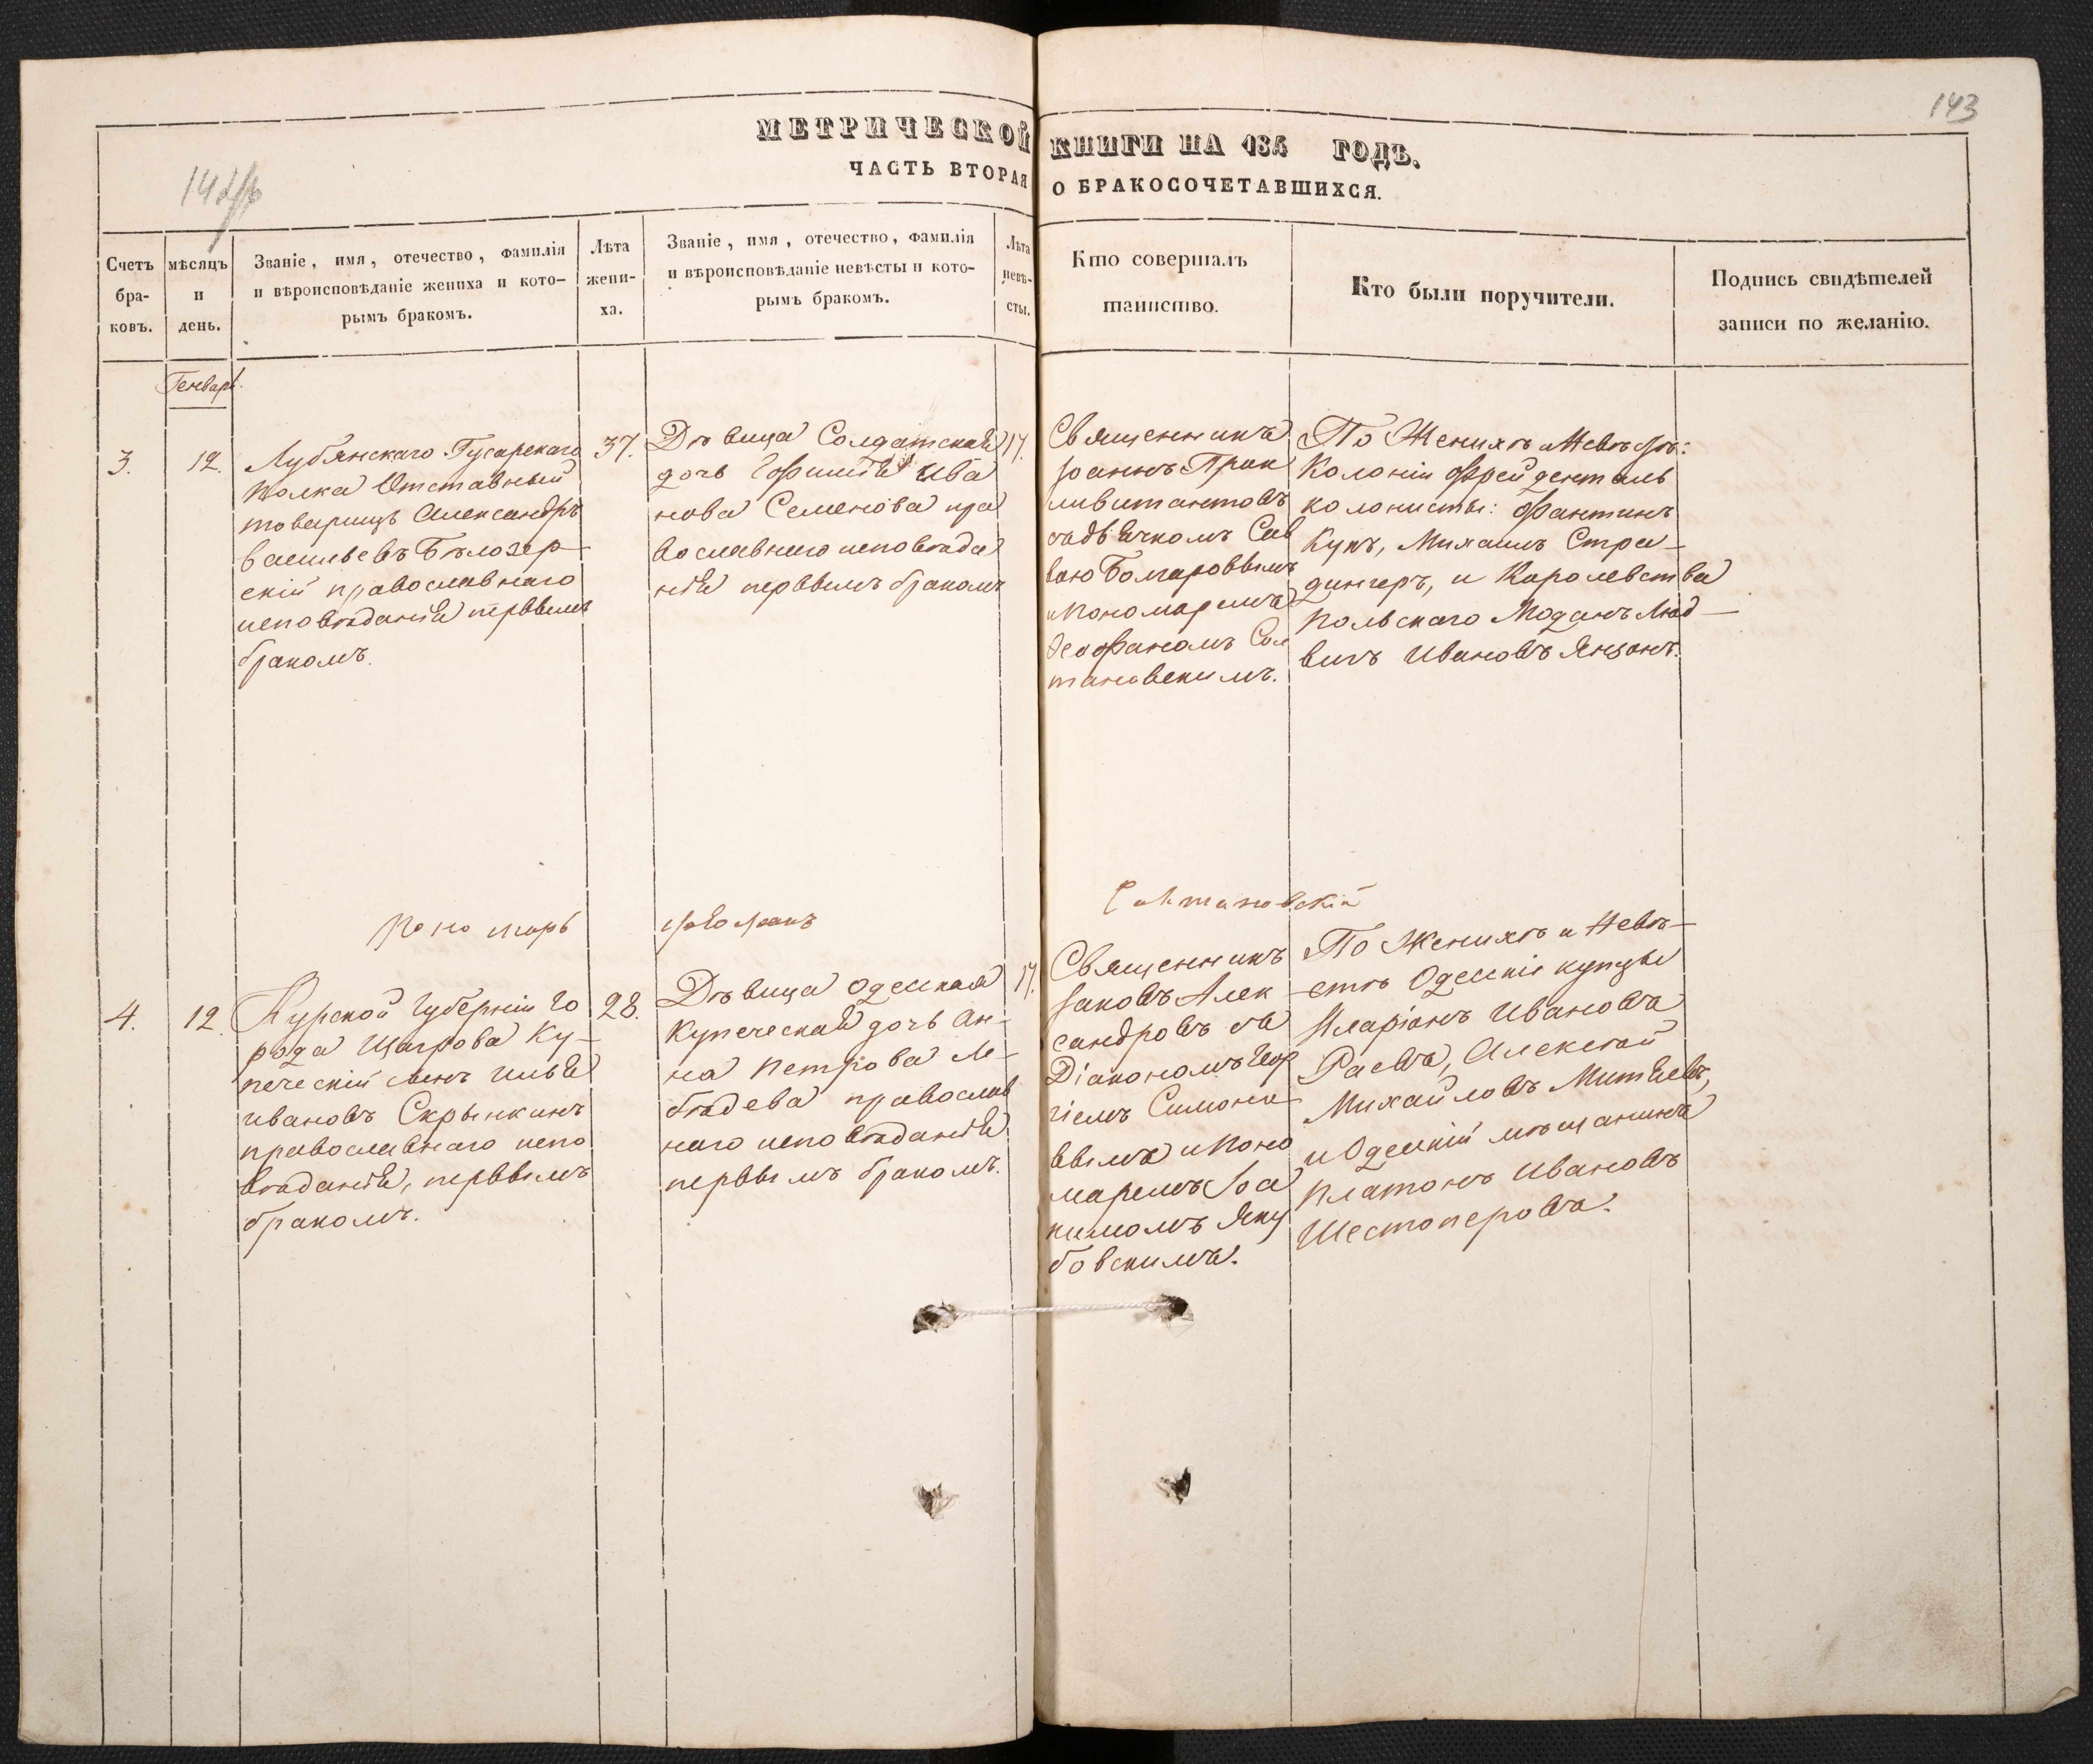 143
МЕТРИЧЕСКОЙ КНИГИ НА 185 ГОДЪ.
ЧАСТЬ ВТОРАЯ О БРАКОСОЧЕТАВШИХСЯ.
142
Счетъ
бра-
ковъ.
мѣсяцъ
и
день.
Званіе, имя, отечество, фамилія
и вѣроисповѣданіе жениха и кото-
рымъ бракомъ.
Лѣта
жени-
ха.
Званіе, имя, отечество, фамилія
и вѣроисповѣданіе невѣсты и кото-
рымъ бракомъ.
Лѣта
невѣ-
сты.
Кто совершалъ
таинство.
Кто были поручители.
Подпись свидѣтелей
записи по желанію.
Генварь.
3.
12.
Лубянскаго Гусарскаго
полка Отставный
товарищъ Александръ
Васильевъ Бѣлозер-
скій православнаго
исповѣданія первымъ
бракомъ.
37.
Дѣвица Солдатская
дочь Ива
нова Семенова пра
вославнаго исповѣда
нія первымъ бракомъ
17.
Священникъ
Іоаннъ Прак
литантовъ
съ дьячкомъ Сав
вою Болгаровымъ
и Пономаремъ
Ѳеофаномъ Сол
тановскимъ.
По Женихѣ и Невѣстѣ:
Колоніи Фрейденталь
колонисты: Фантинъ
Кунъ, Михаилъ Стра-
дингеръ, и Королевства
Польскаго Люд-
вигъ Ивановъ Янзонъ.
Пономарь Ѳеофанъ Солтановскій
4.
12.
Курской Губерніи Го
рода Щигрова Ку-
печескій сынъ Илья
Ивановъ Скрынкинъ
православнаго испо
вѣданія, первымъ
бракомъ.
28.
Дѣвица Одесская
Купеческая дочь Ан-
на Петрова Ле-
бѣдева православ
наго исповѣданія
первымъ бракомъ.
17.
Священникъ
Іаковъ Алек
сандровъ съ
Діакономъ Геор
гіемъ Симоно
вымъ и Поно
маремъ Іоа
кимомъ Яку
бовскимъ.
По Женихѣ и Невѣ-
стѣ Одесскіе купцы
Иларіонъ Ивановъ
Раевъ, Алексѣй
Михайловъ Митяевъ,
и Одесскій мѣщанинъ
Платонъ Ивановъ
Шестоперовъ.